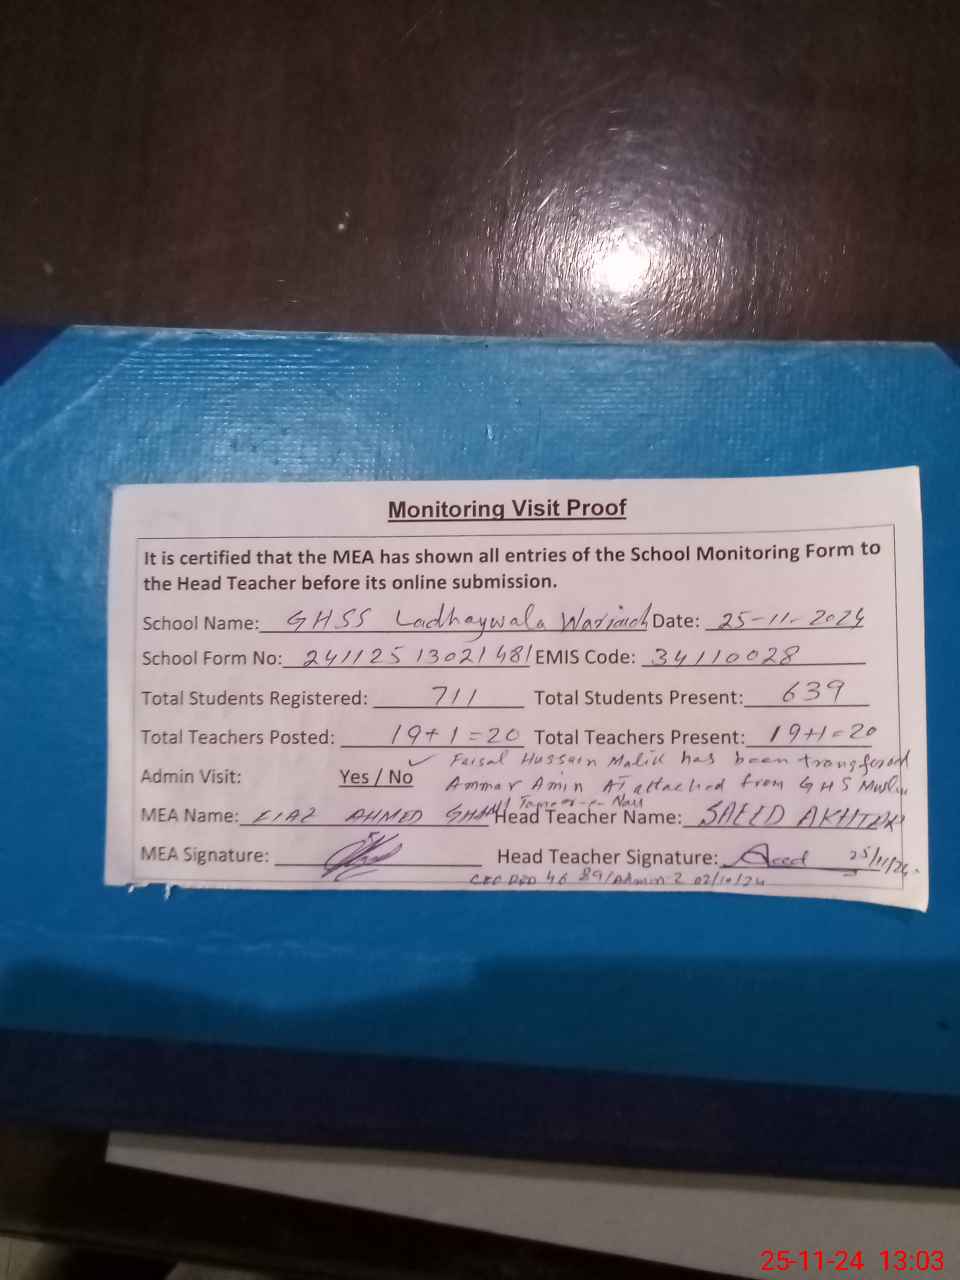 Monitoring Visit Proof
It is certified that the MEA has shown all entries of the School Monitoring Form to
the Head Teacher before its online submission.
School Name: GHSS Ladhaywala Wariach Date: 25-11-2024
School Form No: 241125 1302148 EMIS Code: 34110028
Total Students Registered: 711 Total Students Present: 639
Total Teachers Posted: 19+1=20 Total Teachers Present: 19+1=20
✓ Faisal Hussain Malik has been transferred
Admin Visit: Yes / No Ammar Amin AT attached from GHS Muslim
MEA Name: EIAZ AHMED Head Teacher Name: SAEED AKHTER
MEA Signature: Head Teacher Signature: 25/11/24.
89/Admin-2 02/10/24
25-11-24 13:03